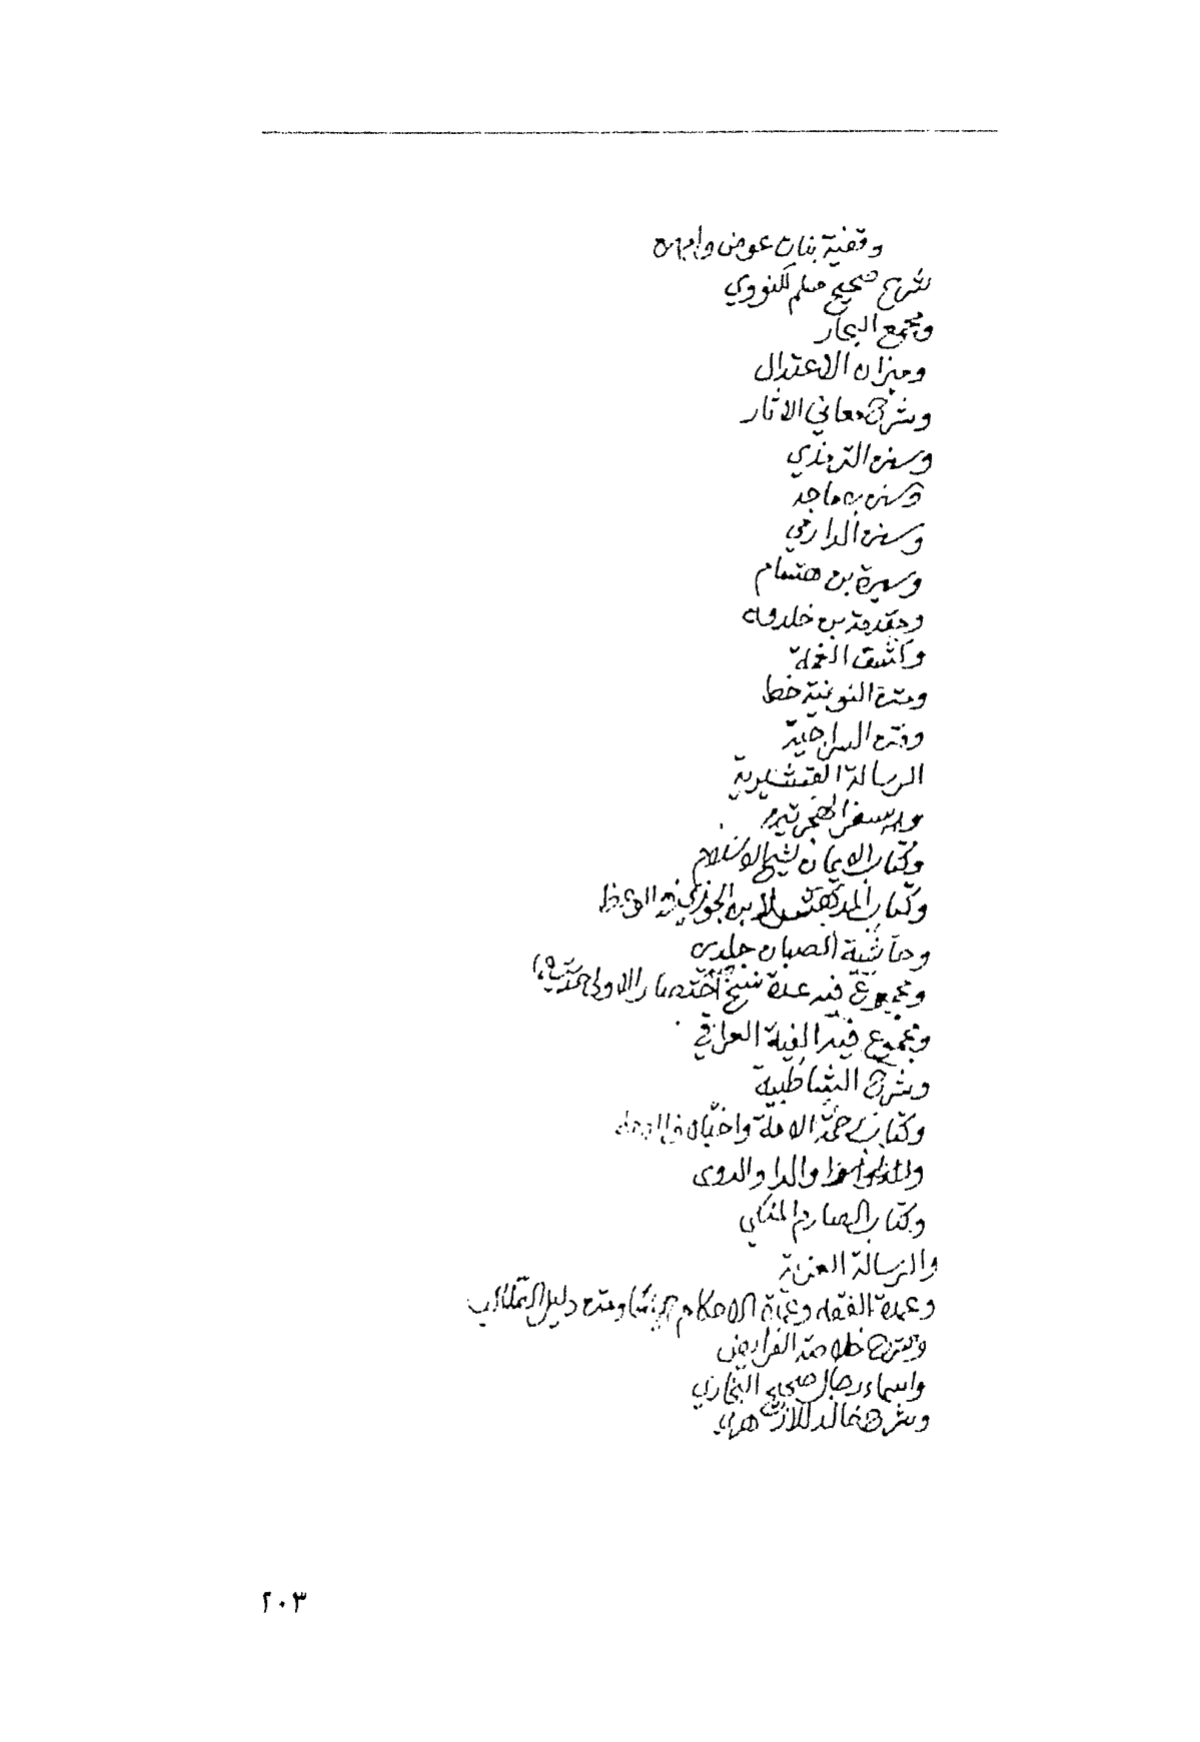 وقفية بنات عوض وامهن
شرح صحيح مسلم للنووي
ومجمع البحار
وميزان الاعتدال
وشرح معاني الاثار
وسنن الترمذي
وسنن بن ماجه
وسنن الدارمي
وسيرة بن هشام
ومقدمة بن خلدون
وكشف الغمة
ومتن النونية خط
ومتن السراجية
الرسالة القشيرية
وكتاب الايمان لشيخ الاسلام
وكتاب المدهش لابن الجوزي في الوعظ
وحاشية الصبان جلدين
ومجموع فيه عدة نسخ
ومجموع فيه الفية العراقي
وشرح الشاطبية
وكتاب رحمة الامة
والدا والدوى
وكتاب الصارم المنكي
والرسالة
وعمدة الفقه وعمدة الاحكام ومتن دليل الطالب
وشرح خلاصة الفرايض
واسماء رجال صحيح البخاري
وشرح خالد للازهري
٢٠٣